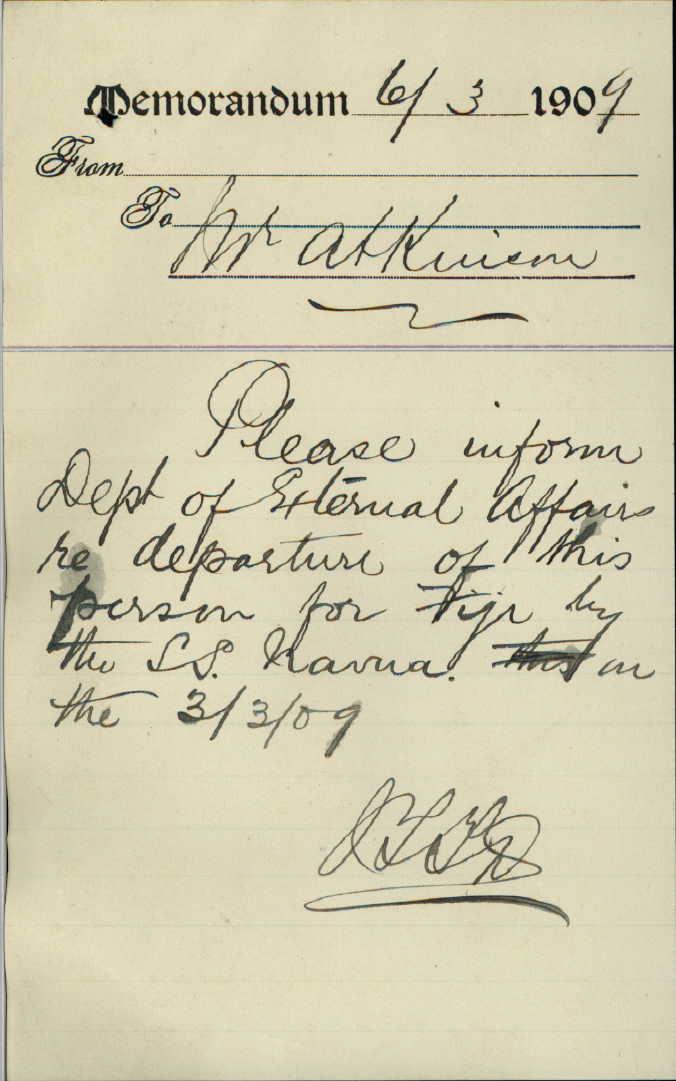 Memorandum 6/3 1909
From
To
Mr Atkinson
Please inform
Dept of External Affairs
re departure of this
person for Fiji by
the S.S. Navua. this on
the 3/3/09